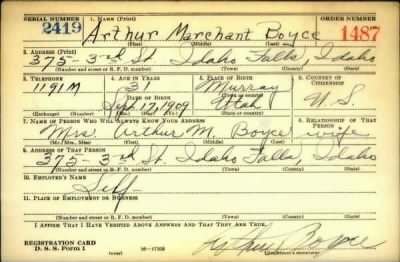 SERIAL NUMBER 1. NAME (Print) ORDER NUMBER
2419 Arthur Marchant Boyce 1487
(First) (Middle) (Last)
2. ADDRESS (Print)
375 - 3rd St. Idaho Falls, Idaho
(Number and street or R. F. D. number) (Town) (County) (State)
3. TELEPHONE 4. AGE IN YEARS 5. PLACE OF BIRTH 6. COUNTRY OF CITIZENSHIP
1191M 31 Murray
DATE OF BIRTH
Sep. 17, 1909 Utah U. S.
(Exchange) (Number) (Mo.) (Day) (Yr.) (State or country)
7. NAME OF PERSON WHO WILL ALWAYS KNOW YOUR ADDRESS 8. RELATIONSHIP OF THAT PERSON
Mrs. Arthur M. Boyce wife
(Mr., Mrs., Miss) (First) (Middle) (Last)
9. ADDRESS OF THAT PERSON
375 - 3rd St. Idaho Falls, Idaho
(Number and street or R. F. D. number) (Town) (County) (State)
10. EMPLOYER'S NAME
Self -
11. PLACE OF EMPLOYMENT OR BUSINESS
(Number and street or R. F. D. number) (Town) (County) (State)
I AFFIRM THAT I HAVE VERIFIED ABOVE ANSWERS AND THAT THEY ARE TRUE.
REGISTRATION CARD
D. S. S. Form 1 (over) 16-17105 Boyce
(Registrant's signature)